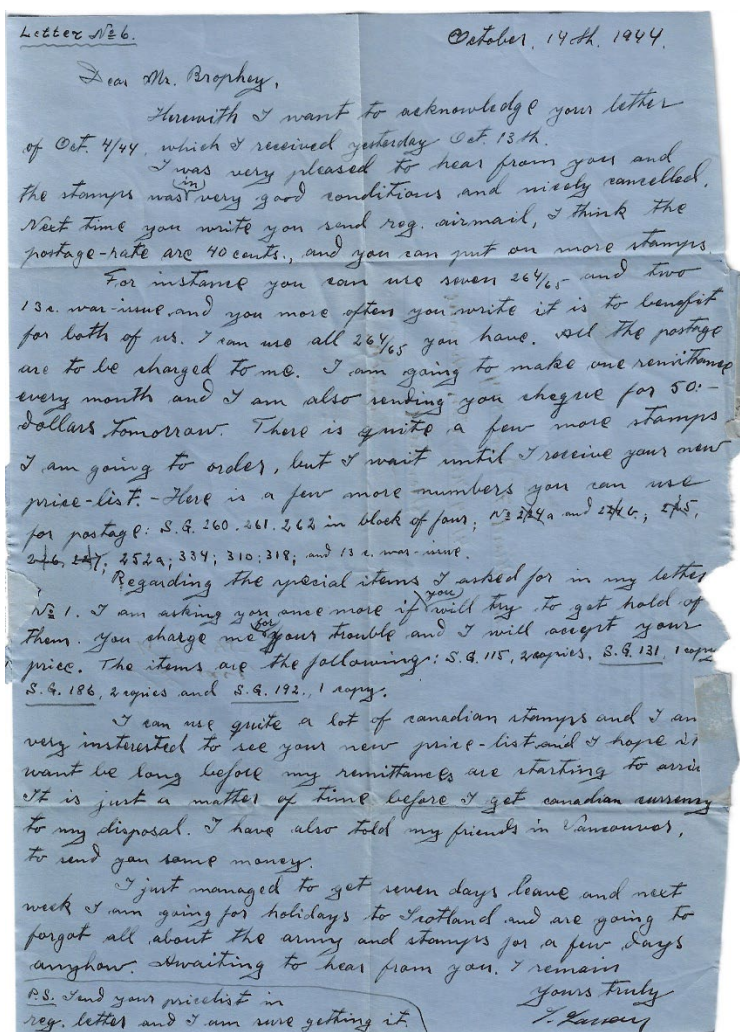 Letter № 6.
October. 14th. 1944.
Dear Mr. Brophey,
Herewith I want to acknowledge your letter
of Oct. 4/44, which I received yesterday Oct. 13th.
I was very pleased to hear from you and
the stamps was in very good conditions and nicely cancelled.
Next time you write you send reg. airmail, I think the
postage-rate are 40 cents., and you can put on more stamps
For instance you can use seven 264/65 and two
13 c. war-issue, and you more often you write it is to benefit
for both of us. I can use all 264/65 you have. All the postage
are to be charged to me. I am going to make one remittance
every month and I am also sending you cheque for 50.-
Dollars tomorrow. There is quite a few more stamps
I am going to order, but I wait until I receive your new
price-list. - Here is a few more numbers you can use
for postage: S.G. 260. 261. 262 in block of four;
252a; 334; 310; 318; and 13 c. war-issue.
Regarding the special items I asked for in my letter
№ 1. I am asking you once more if you will try to get hold of
them. you charge me for your trouble and I will accept your
price. The items are the following: S.G. 115, 2 copies, S.G. 131, 1 copy
S.G. 186, 2 copies and S.G. 192, 1 copy.
I can use quite a lot of canadian stamps and I am
very insterested to see your new price-list and I hope it
want be long before my remittances are starting to
It is just a matter of time before I get canadian currency
to my disposal. I have also told my friends in Vancouver,
to send you some money.
I just managed to get seven days leave and next
week I am going for holidays to Scotland and are going to
forgot all about the army and stamps for a few days
anyhow. Awaiting to hear from you. I remain
Yours truly
P.S. Send your pricelist in
reg. letter and I am sure getting it.